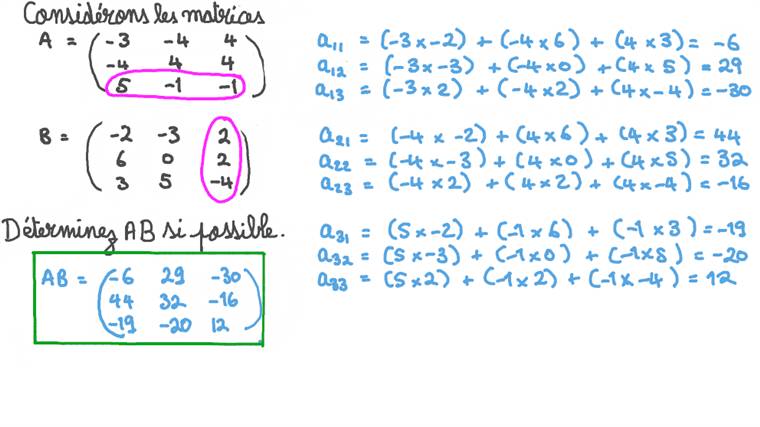 Considérons les matrices
A = (-3 -4 4
-4 4 4
5 -1 -1)
B = (-2 -3 2
6 0 2
3 5 -4)
Déterminez AB si possible.
AB = (-6 29 -30
44 32 -16
-19 -20 12)
a11 = (-3 x -2) + (-4 x 6) + (4 x 3) = -6
a12 = (-3 x -3) + (-4 x 0) + (4 x 5) = 29
a13 = (-3 x 2) + (-4 x 2) + (4 x -4) = -30
a21 = (-4 x -2) + (4 x 6) + (4 x 3) = 44
a22 = (-4 x -3) + (4 x 0) + (4 x 5) = 32
a23 = (-4 x 2) + (4 x 2) + (4 x -4) = -16
a31 = (5 x -2) + (-1 x 6) + (-1 x 3) = -19
a32 = (5 x -3) + (-1 x 0) + (-1 x 5) = -20
a33 = (5 x 2) + (-1 x 2) + (-1 x -4) = 12